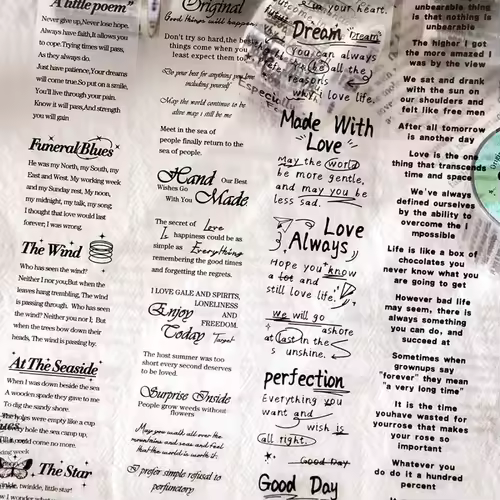 A little poem"
Never give up,Never lose hope.
Always have faith,It allows you
to cope.Trying times will pass,
As they always do.
Just have patience,Your dreams
will come true.So put on a smile,
You'll live through your pain.
Know it will pass,And strength
you will gain
Funeral Blues
He was my North, my South, my
East and West. My working week
and my Sunday rest, My noon,
my midnight, my talk, my song.
I thought that love would last
forever, I was wrong.
The Wind
Who has seen the wind?
Neither I nor you,But when the
leaves hang trembling, The wind
is passing through. Who has seen
the wind? Neither you nor I; But
when the trees bow down their
heads, The wind is passing by.
At The Seaside
When I was down beside the sea
A wooden spade they gave to me
To dig the sandy shore.
The holes were empty like a cup
every hole the sea came up,
could come no more.
The Star
twinkle, little star!
I wonder what you are
Original
Good things will happen
Don't try so hard,the best
things come when you
least expect them to.
Do your best for anything you love
including yourself
May the world continue to be
alive may I still be me
Meet in the sea of
people finally return to the
sea of people.
Hand Our Best
Wishes Go
With You Made
The secret of Love
Is happiness could be as
simple as Everything
remembering the good times
and forgetting the regrets.
I LOVE GALE AND SPIRITS,
LONELINESS
Enjoy AND
FREEDOM.
Today Target
The host summer was too
short every second deserves
to be loved.
Surprise Inside
People grow weeds without
flowers
May you walk all over the
mountains and seas and feel
that the world is worth it.
I prefer simple refusal to
perfunctory
in your heart.
Dream "Dream"
You can always
be all the
reasons
why I love life.
Especially
Made With
Love
May the world
be more gentle,
and may you be
less sad.
Love
Always
Hope you know
a lot and
still love life.
We will go
ashore
at last in the
sunshine.
perfection
Everything you
want and
wish is
all right.
Good Day
Good Day
unbearable thing
is that nothing is
unbearable
The higher I got
the more amazed I
was by the view
We sat and drank
with the sun on
our shoulders and
felt like free men
After all tomorrow
is another day
Love is the one
thing that transcends
time and space
We've always
defined ourselves
by the ability to
overcome the i
mpossible
Life is like a box of
chocolates you
never know what you
are going to get
However bad life
may seem, there is
always something
you can do, and
succeed at
Sometimes when
grownups say
"forever" they mean
"a very long time"
It is the time
youhave wasted for
yourrose that makes
your rose so
important
Whatever you
do do it a hundred
percent